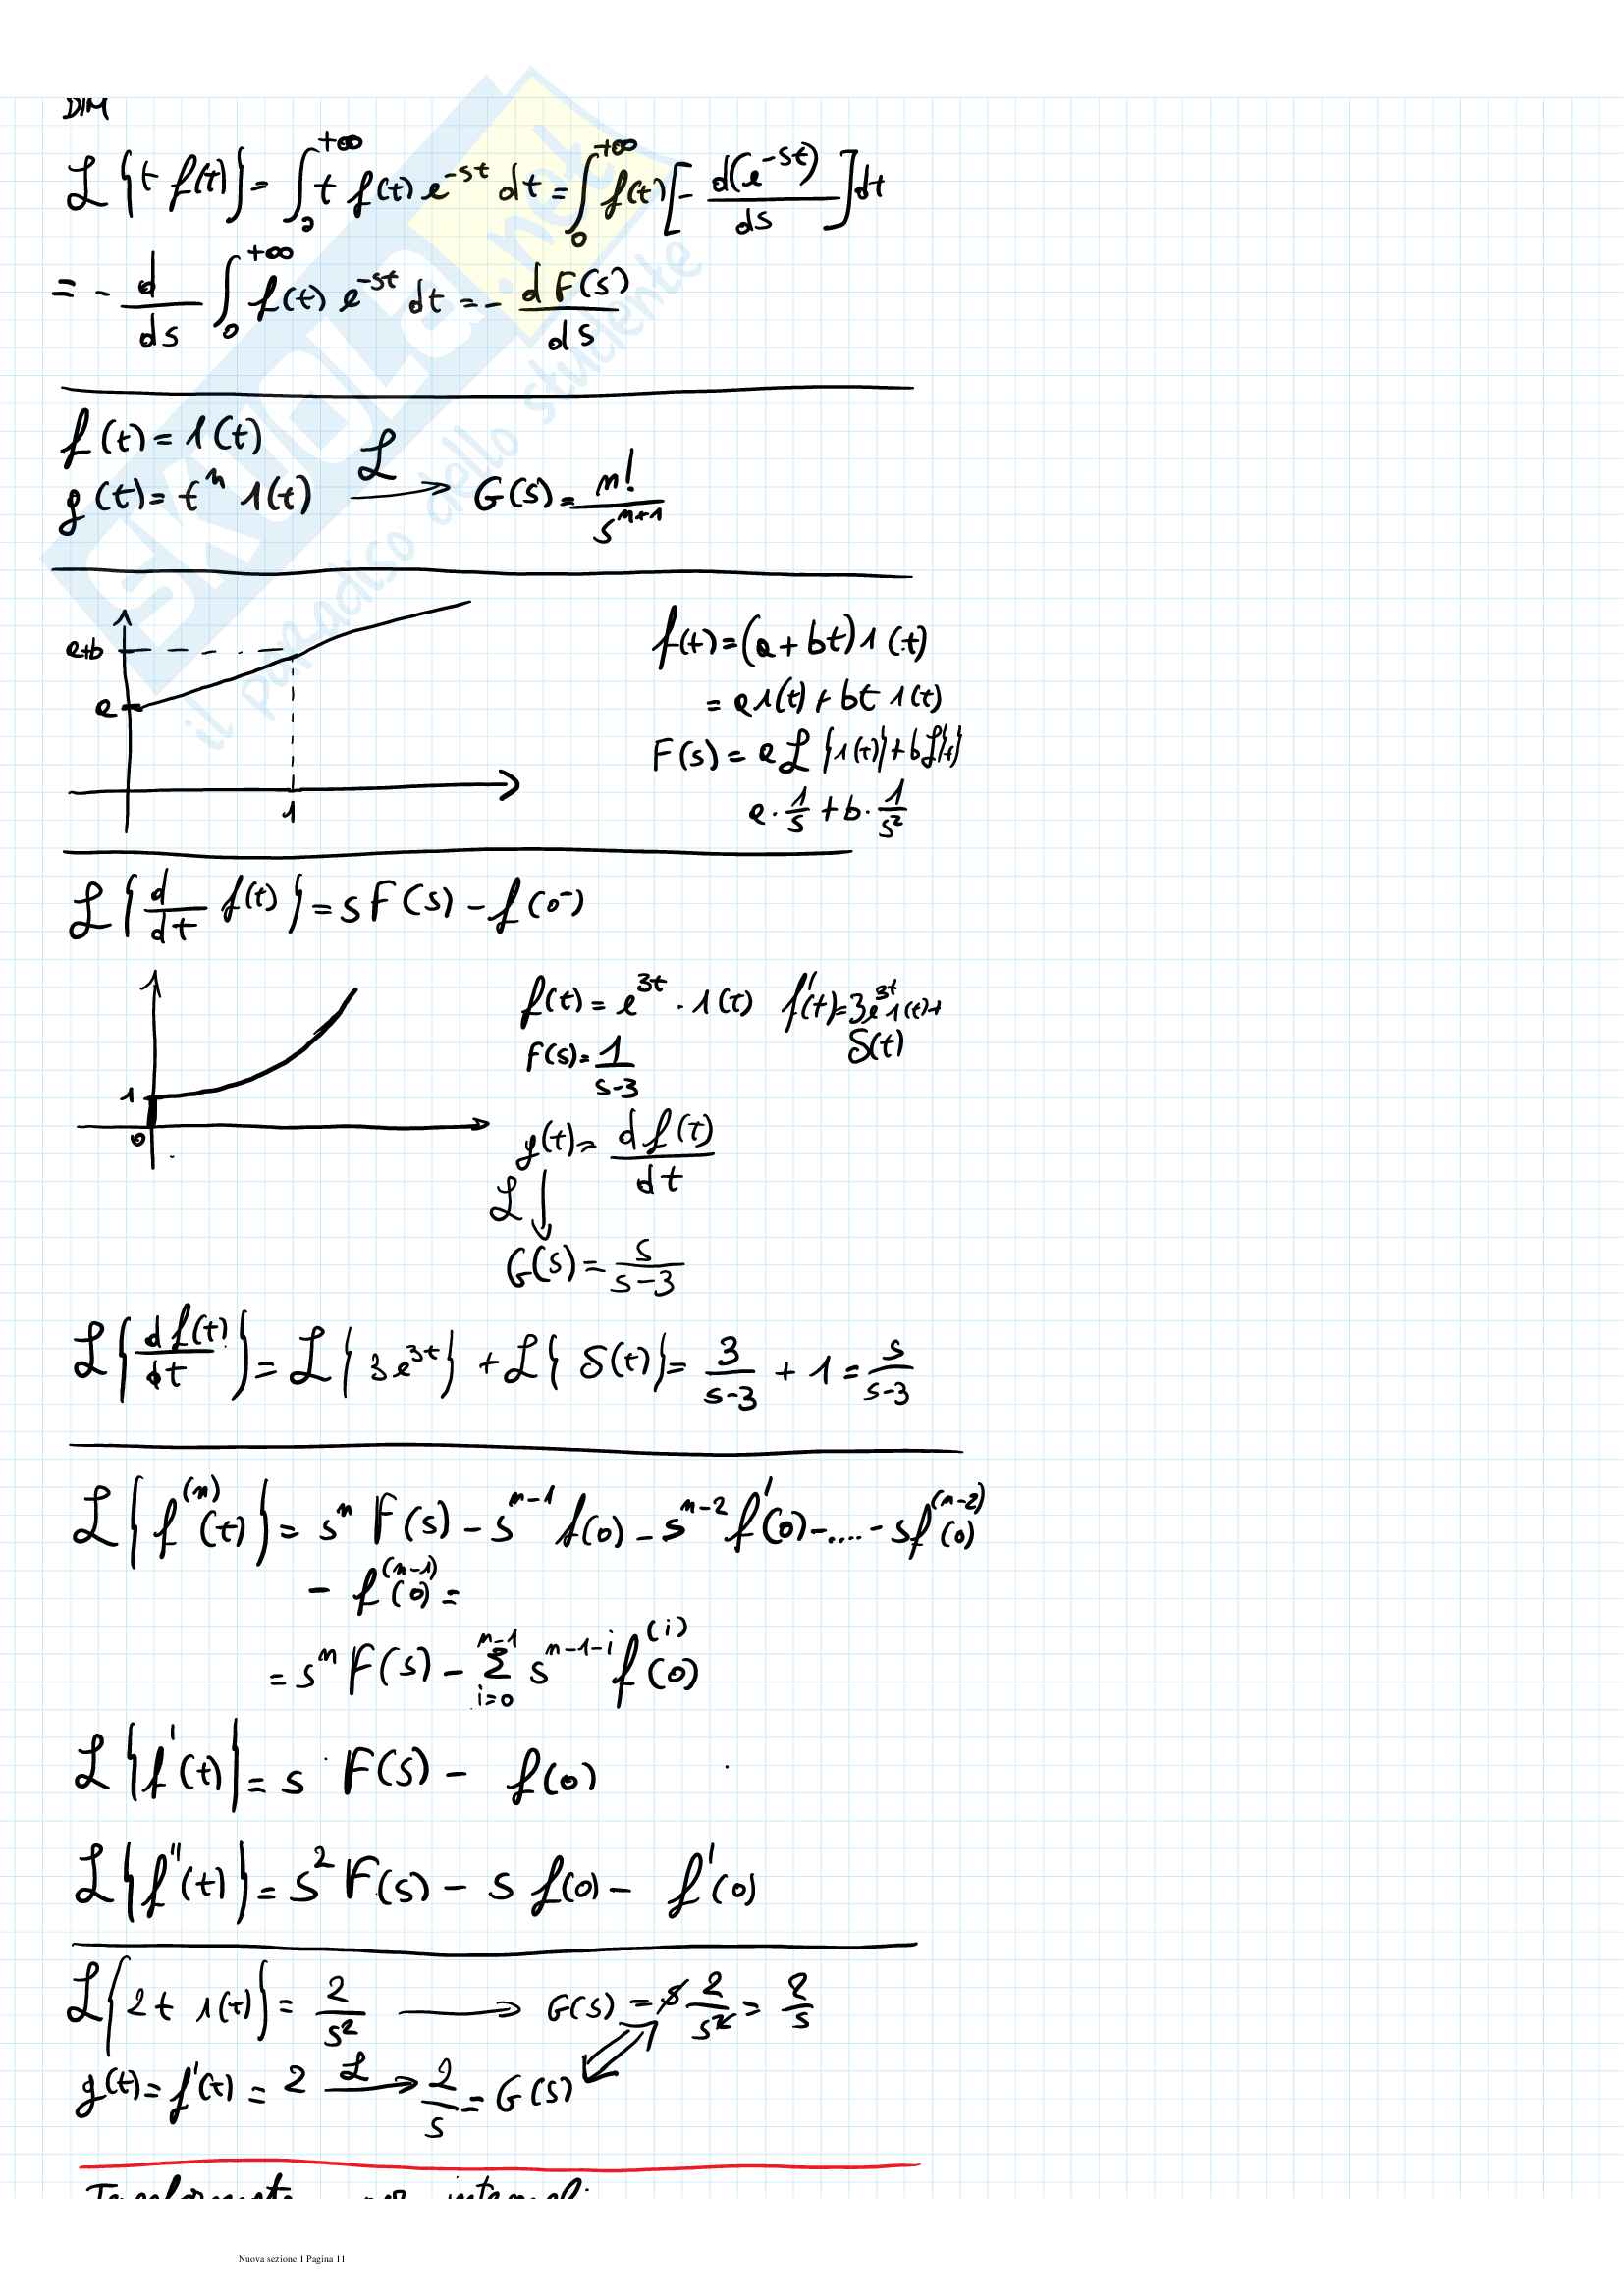 DIM
ℒ{t f(t)} = ∫₀^{+∞} t f(t) e^{-st} dt = ∫₀^{+∞} f(t) [- d(e^{-st})/ds] dt
= - d/ds ∫₀^{+∞} f(t) e^{-st} dt = - dF(s)/ds
f(t) = 1(t)
g(t) = t^n 1(t) ℒ→ G(s) = n!/s^{n+1}
a+b
a
1
f(t) = (a + bt) 1(t)
= a 1(t) + bt 1(t)
F(s) = a ℒ{1(t)} + b ℒ{t}
a · 1/s + b · 1/s²
ℒ{d/dt f(t)} = s F(s) - f(0⁻)
1
0
f(t) = e^{3t} · 1(t) f'(t) = 3e^{3t} 1(t) +
δ(t)
F(s) = 1/(s-3)
g(t) = d f(t)/dt
ℒ ↓
G(s) = s/(s-3)
ℒ{d f(t)/dt} = ℒ{3e^{3t}} + ℒ{δ(t)} = 3/(s-3) + 1 = s/(s-3)
ℒ{f^{(n)}(t)} = s^n F(s) - s^{n-1} f(0) - s^{n-2} f'(0) - .... - s f^{(n-2)}(0)
- f^{(n-1)}(0) =
= s^n F(s) - Σ_{i=0}^{n-1} s^{n-1-i} f^{(i)}(0)
ℒ{f'(t)} = s F(s) - f(0)
ℒ{f''(t)} = s² F(s) - s f(0) - f'(0)
ℒ{2t 1(t)} = 2/s² → G(s) = s 2/s² = 2/s
g(t) = f'(t) = 2 ℒ→ 2/s = G(s)
Trasformata per integrali
Nuova sezione 1 Pagina 11
SKUOLA.net
il paradiso dello studente